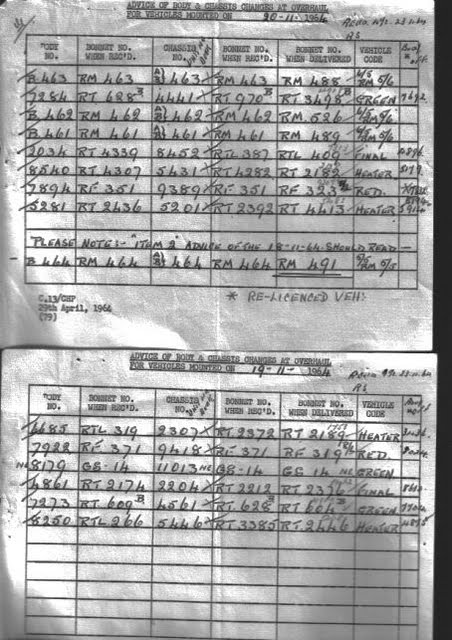 ADVICE OF BODY & CHASSIS CHANGES AT OVERHAUL
FOR VEHICLES MOUNTED ON 20-11- 1964
BODY NO. BONNET NO. WHEN REC'D. CHASSIS NO. BONNET NO. WHEN REC'D. BONNET NO. WHEN DELIVERED VEHICLE CODE
B.463 RM 463 463 RM 463 RM 488 RM 5/6
7284 RT 628 B 4441 RT 970 B RT 3498 B GREEN
B.462 RM 462 462 RM 462 RM 526 RM 5/6
B.461 RM 461 461 RM 461 RM 489 RM 5/6
2034 RT 4339 8452 RTL 387 RTL 409 FINAL
8540 RT 4307 5431 RT 4282 RT 2182 HEATER
7894 RF 351 9389 RF 351 RF 323 RED
5281 RT 2436 5201 RT 2392 RT 4413 HEATER
"PLEASE NOTE:- "ITEM 2" ADVICE OF THE 18-11-64 SHOULD READ -
B.464 RM 464 464 RM 464 RM 491 RM 5/5
C.13/CHP
29th April, 1964
(79)
* RE-LICENCED VEH:
ADVICE OF BODY & CHASSIS CHANGES AT OVERHAUL
FOR VEHICLES MOUNTED ON 19-11- 1964
BODY NO. BONNET NO. WHEN REC'D. CHASSIS NO. BONNET NO. WHEN REC'D. BONNET NO. WHEN DELIVERED VEHICLE CODE
6685 RTL 319 2307 RT 2372 RT 2189 HEATER
7922 RF 371 9418 RF 371 RF 319 RED
8179 GS-14 11013 GS-14 GS 14 GREEN
4861 RT 2174 2204 RT 2212 RT 2376 FINAL
7273 RT 609 B 4561 RT 628 B RT 604 B GREEN
8250 RTL 266 5446 RT 3385 RT 2446 HEATER